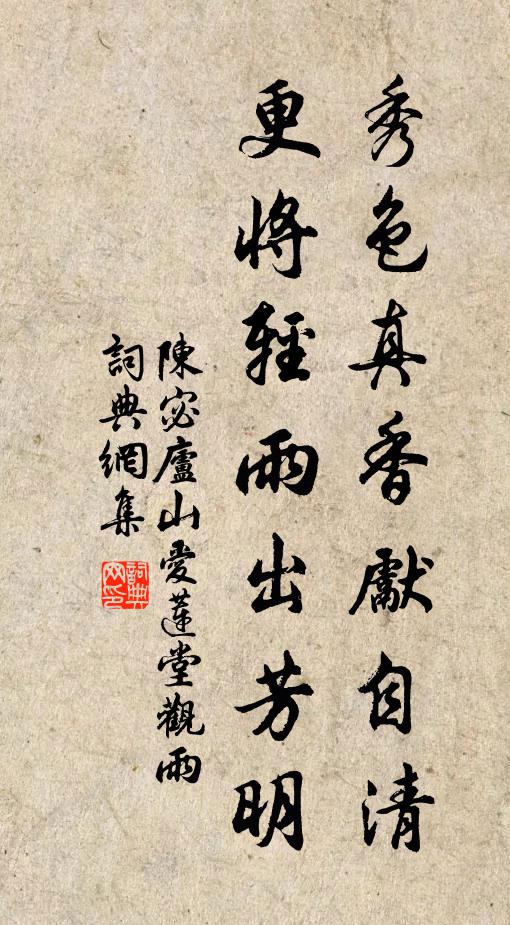 秀色真香獻自清
更將輕雨出芳明
陳宓廬山愛蓮堂觀雨
詞典網集
詞典網印